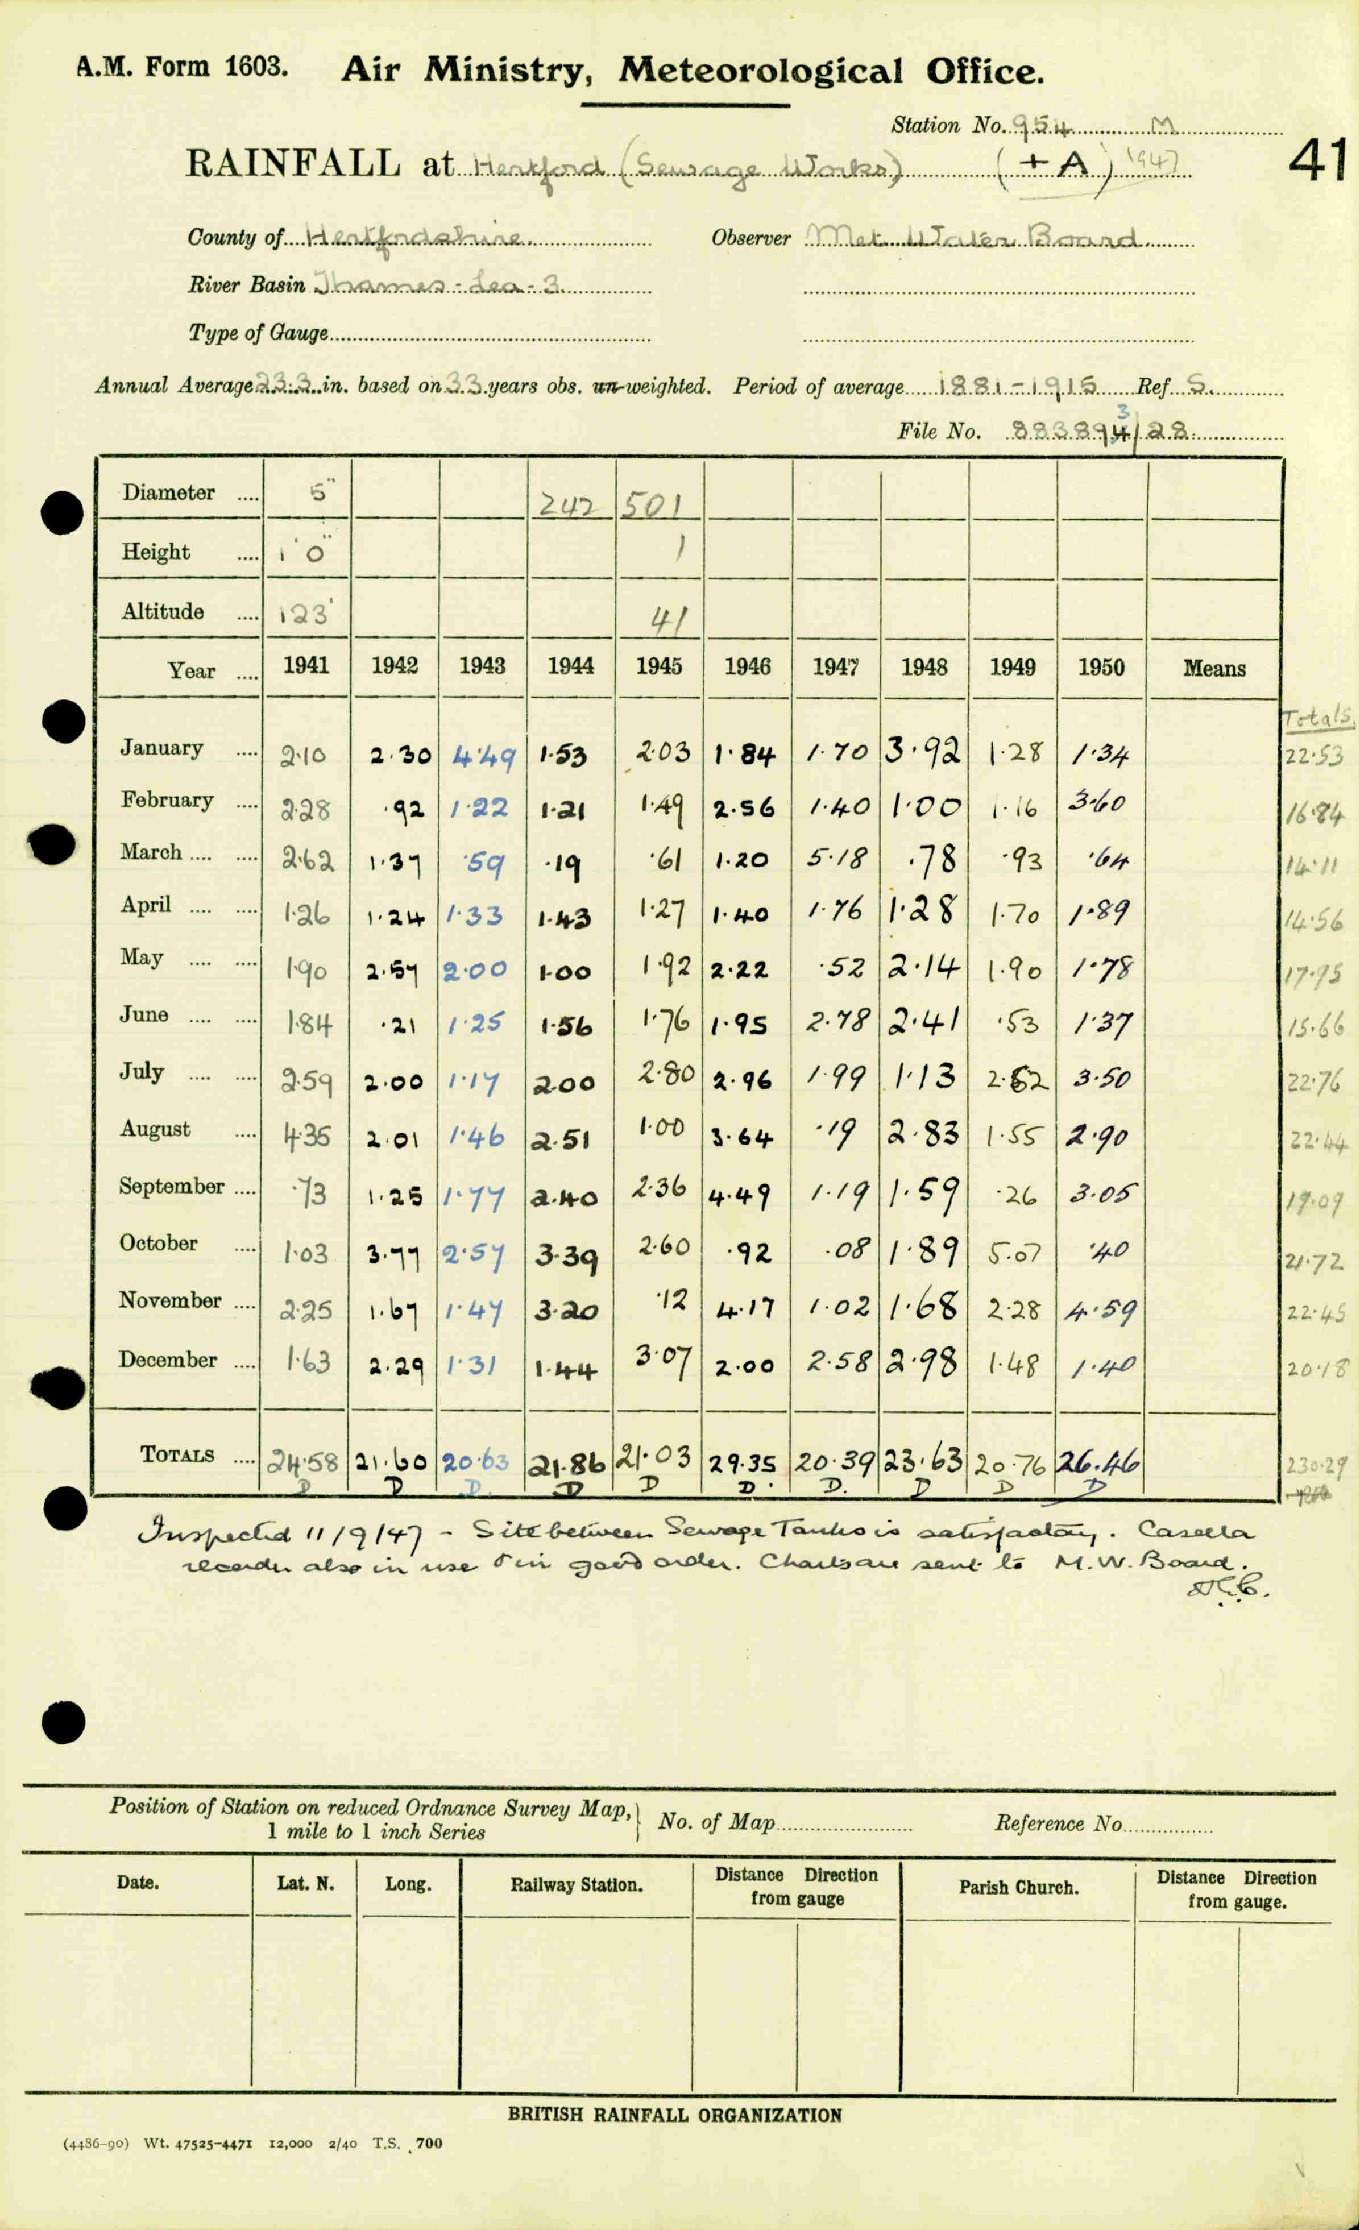 A.M. Form 1603. Air Ministry, Meteorological Office.
Station No. 954 M
RAINFALL at Hertford (Sewage Works) (+A) 1947 41
County of Hertfordshire Observer Met. Water Board
River Basin Thames - Lea - 3
Type of Gauge
Annual Average 23.3 in. based on 33 years obs. un-weighted. Period of average 1881-1915 Ref S.
3
File No. 883894/28
Diameter .... 5" 242 501
Height .... 1' 0" 1
Altitude .... 123' 41
Year .... 1941 1942 1943 1944 1945 1946 1947 1948 1949 1950 Means
Totals
January .... 2.10 2.30 4.49 1.53 2.03 1.84 1.70 3.92 1.28 1.34 22.53
February .... 2.28 .92 1.22 1.21 1.49 2.56 1.40 1.00 1.16 3.60 16.84
March .... .... 2.62 1.37 .59 .19 .61 1.20 5.18 .78 .93 .64 14.11
April .... .... 1.26 1.24 1.33 1.43 1.27 1.40 1.76 1.28 1.70 1.89 14.56
May .... .... 1.90 2.57 2.00 1.00 1.92 2.22 .52 2.14 1.90 1.78 17.95
June .... .... 1.84 .21 1.25 1.56 1.76 1.95 2.78 2.41 .53 1.37 15.66
July .... .... 2.59 2.00 1.17 2.00 2.80 2.96 1.99 1.13 2.62 3.50 22.76
August .... 4.35 2.01 1.46 2.51 1.00 3.64 .19 2.83 1.55 2.90 22.44
September .... .73 1.25 1.77 2.40 2.36 4.49 1.19 1.59 .26 3.05 19.09
October .... 1.03 3.77 2.57 3.39 2.60 .92 .08 1.89 5.07 .40 21.72
November .... 2.25 1.67 1.47 3.20 .12 4.17 1.02 1.68 2.28 4.59 22.45
December .... 1.63 2.29 1.31 1.44 3.07 2.00 2.58 2.98 1.48 1.40 20.18
TOTALS .... 24.58 21.60 20.63 21.86 21.03 29.35 20.39 23.63 20.76 26.46 230.29
D D D. D D D. D. D D D
Inspected 11/9/47 - Site between Sewage Tanks is satisfactory. Casella
recorder also in use & in good order. Charts are sent to M.W. Board.
Position of Station on reduced Ordnance Survey Map, } No. of Map Reference No.
1 mile to 1 inch Series
Date. Lat. N. Long. Railway Station. Distance Direction from gauge Parish Church. Distance Direction from gauge.
BRITISH RAINFALL ORGANIZATION
(4486-90) Wt. 47525-4471 12,000 2/40 T.S. 700